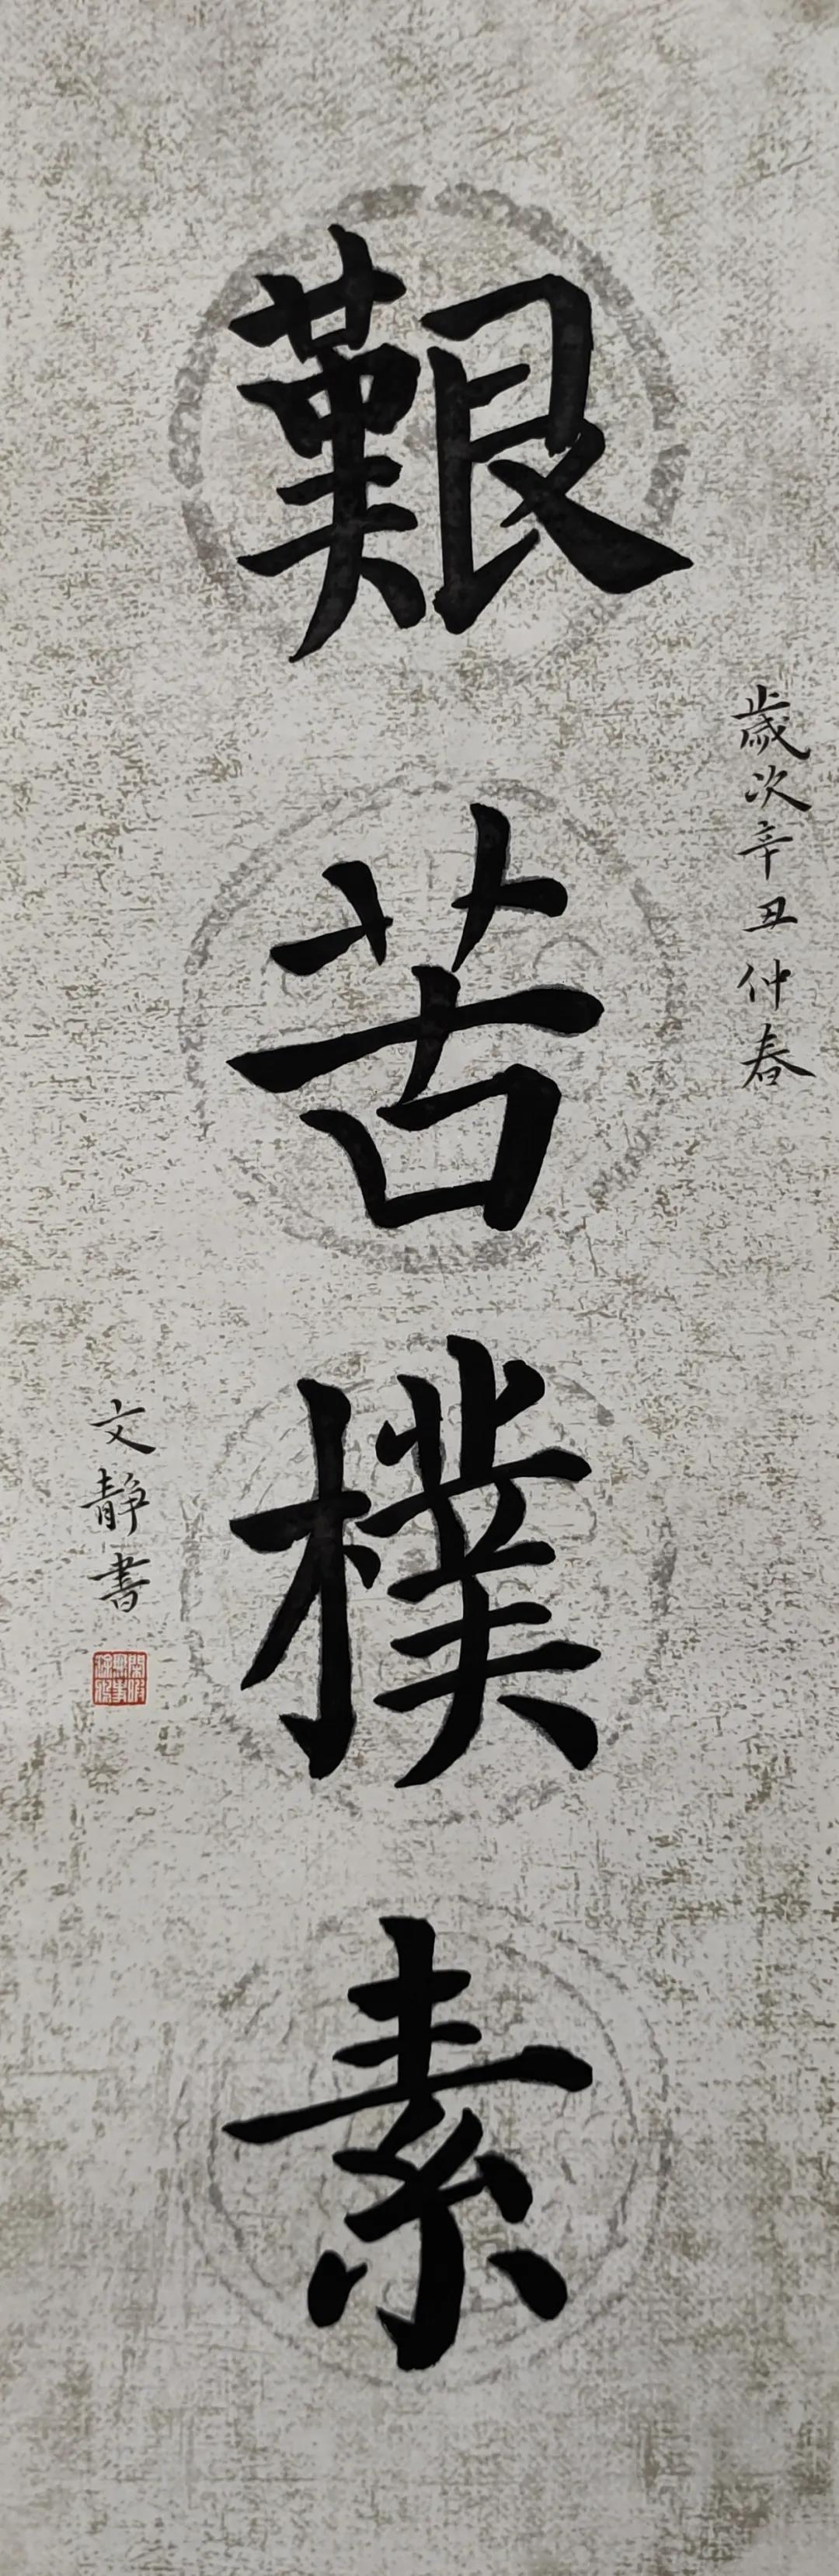 歲次辛丑仲春
艱苦樸素
文靜書